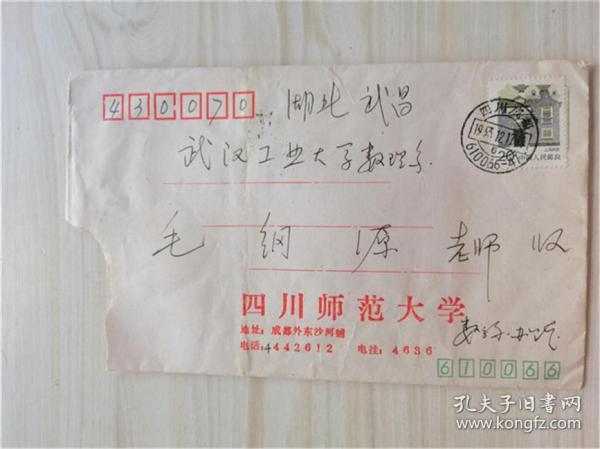 430070 湖北 武昌
武汉工业大学数理系
毛纲源 老师 收
四川师范大学
地址：成都外东沙河铺
电话：4442612 电挂：4636
610066
四川成都
1993.12.17
610066
中国人民邮政
孔夫子旧书网
www.kongfz.com